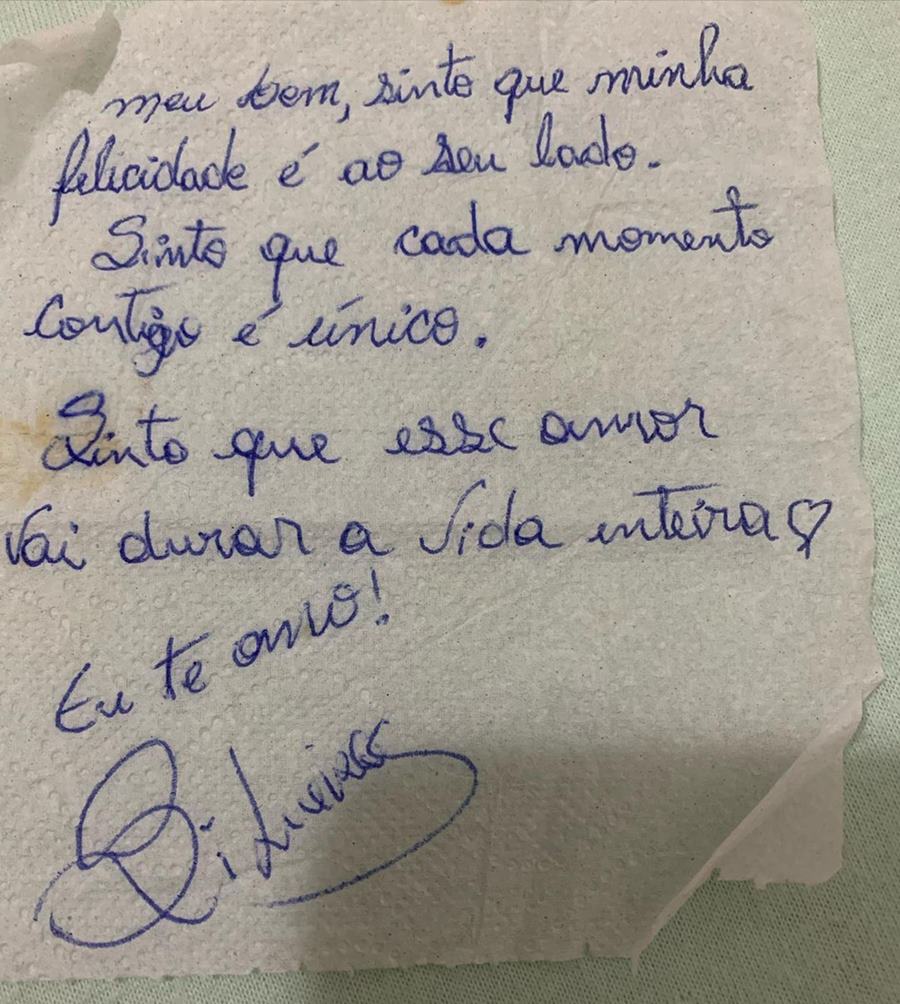 meu bem, sinto que minha
felicidade é ao seu lado.
Sinto que cada momento
contigo é único.
Sinto que esse amor
vai durar a vida inteira ♡
Eu te amo!